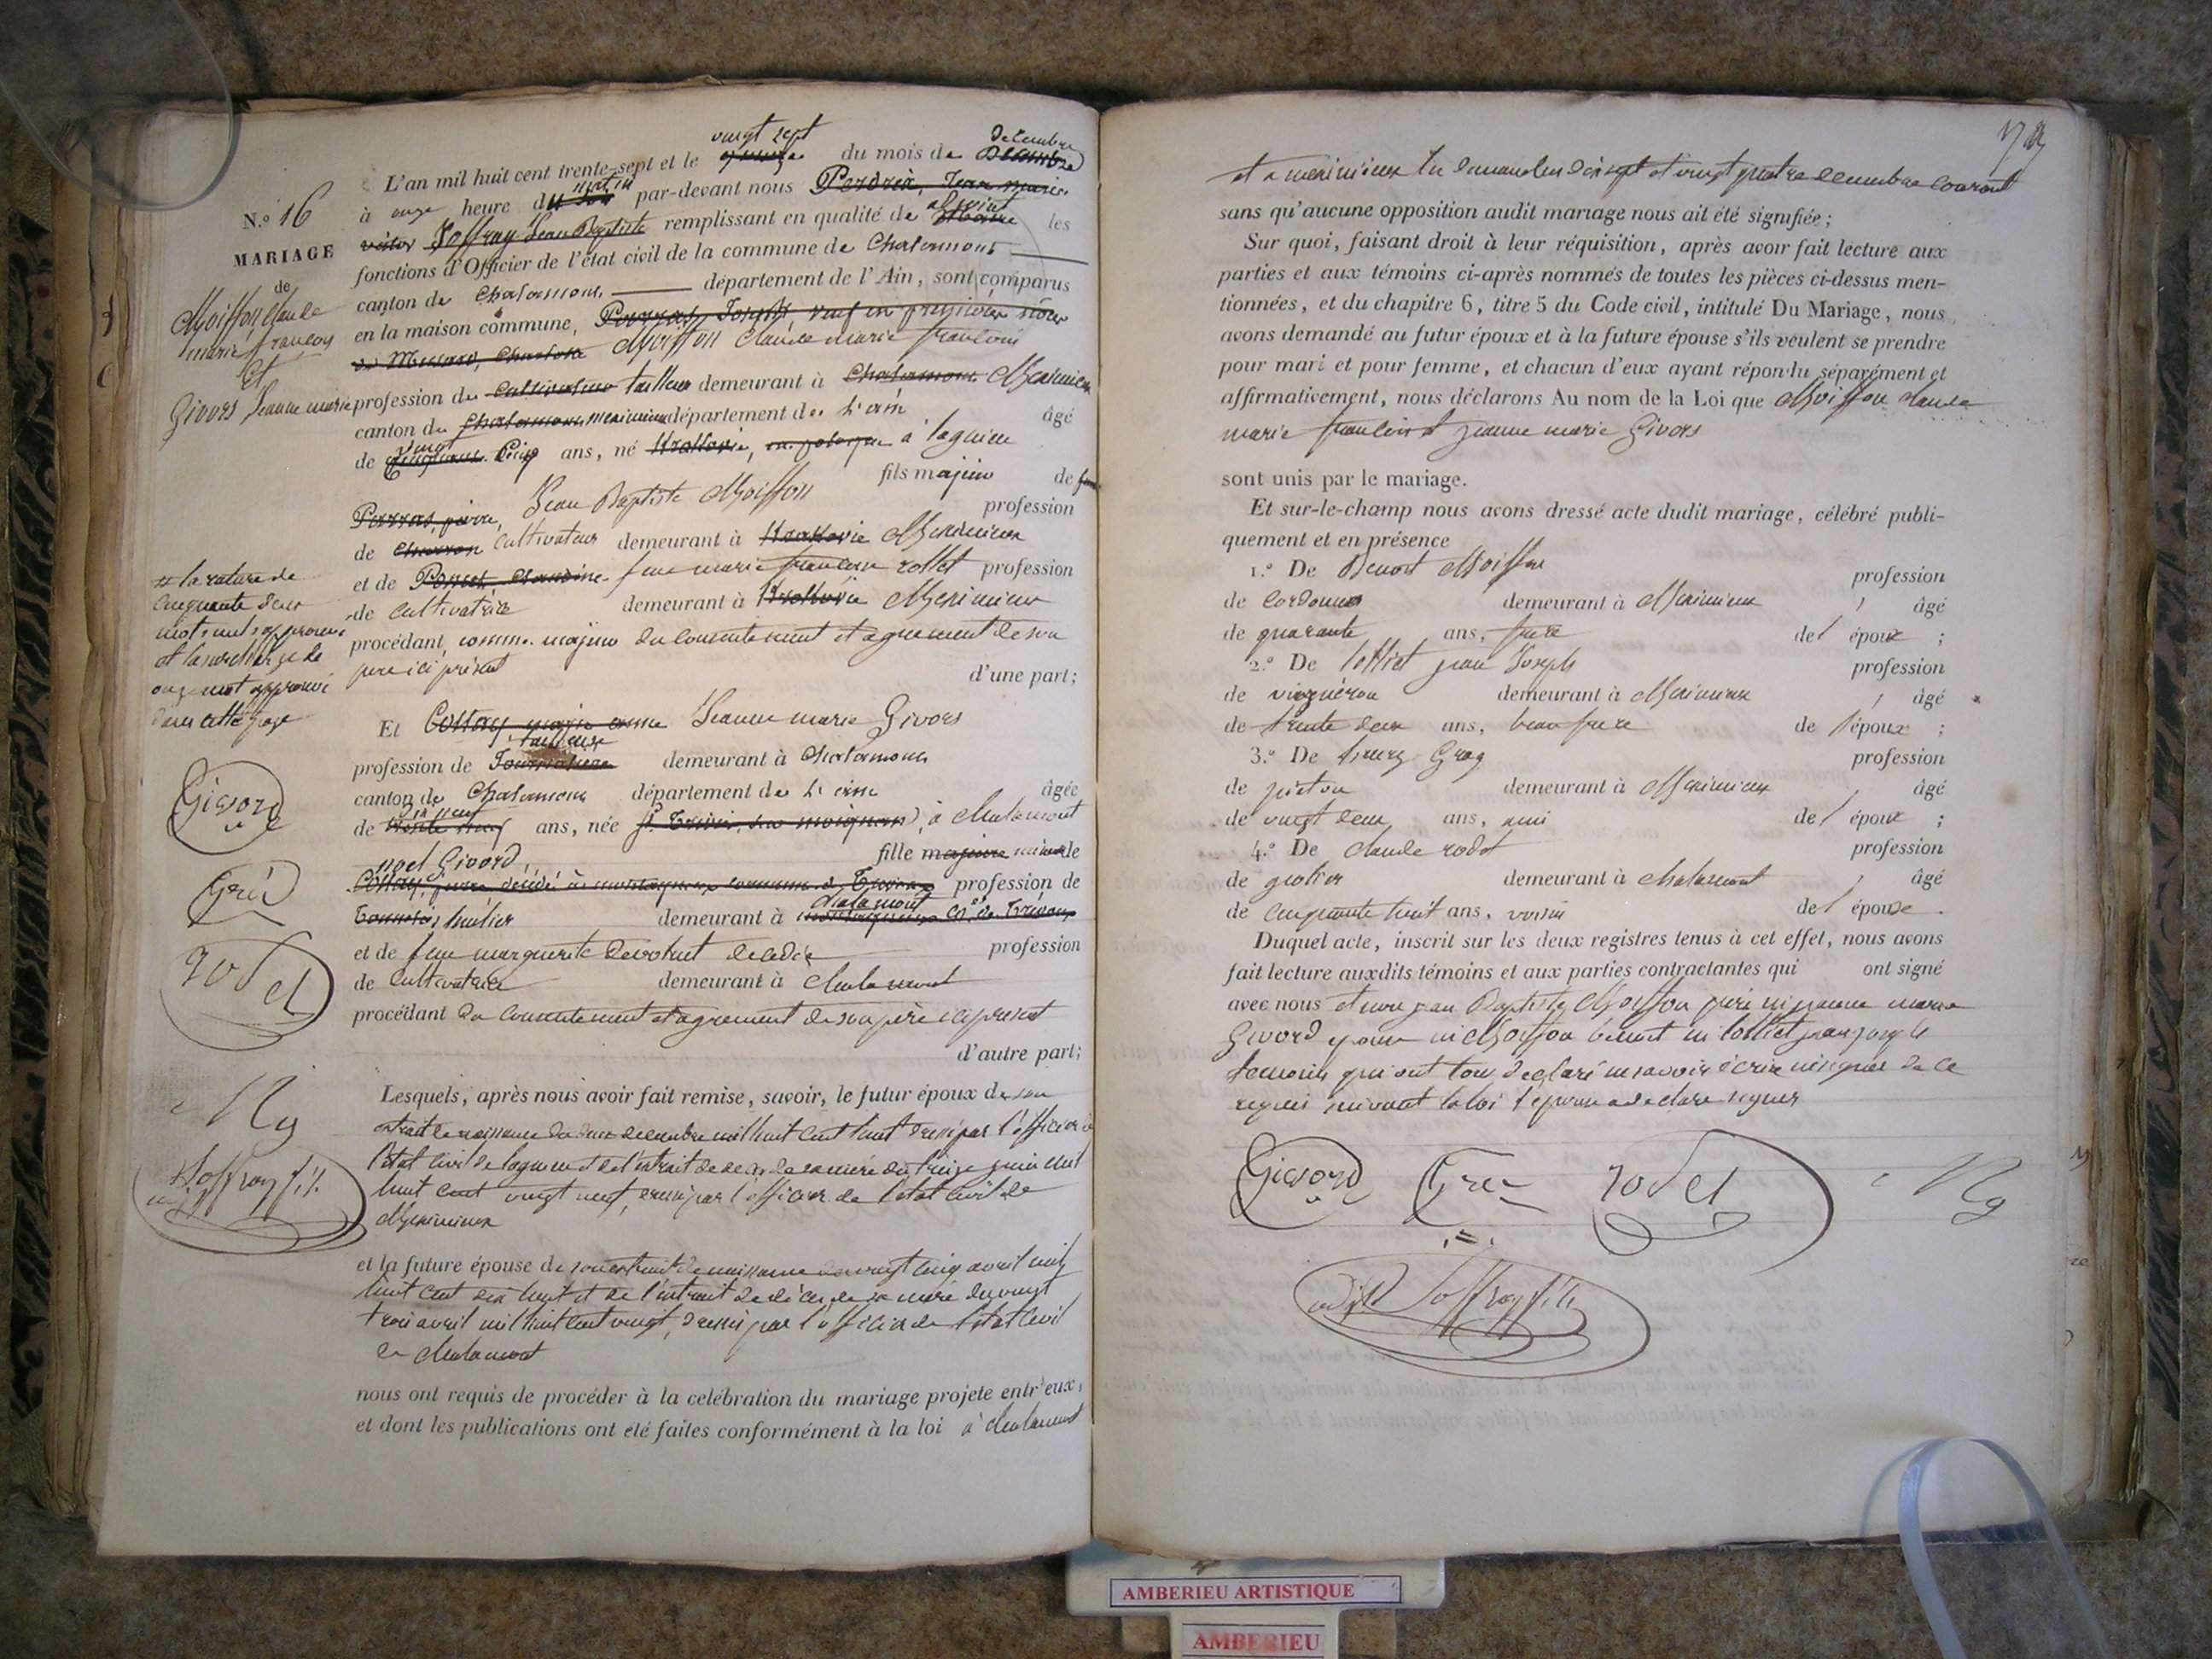 N.º 16
MARIAGE
de
Moiffon Claude
marie françois
Et
Givors Jeanne marie
vingt sept decembre
L'an mil huit cent trente-sept et le quinze du mois de Decembre
matin
à onze heure du soir par-devant nous Perdrix, Jean marie
adjoint
Joffray Jean Baptiste remplissant en qualité de Maire les
fonctions d'Officier de l'état civil de la commune de Chalamont
canton de Chalamont département de l'Ain, sont comparus
en la maison commune, Perras, Joseph veuf en premières nôces
Moiffon Claude marie françois
profession de Cultivateur tailleur demeurant à Chalamont Meximieux
canton de Chalamont meximieux département de L'ain âgé
vingt
de cinquante Cinq ans, né Krakovie, en pologne à lagnieu
fils majeur de
Perras, pierre, Jean Baptiste Moiffon profession
de Charron Cultivateur demeurant à Krakovie Meximieux
et de Poncet, Claudine feue marie françoise rollet profession
de Cultivatrice demeurant à Krakovie Meximieux
procédant comme majeur du Consentement et agrement de son
pere ici présent
d'une part;
# la rature de
Cinquante deux
mots nuls approuvé
et la surcharge de
onze mot approuvé
dans cette page
Et Jeanne marie Givors
tailleuse
profession de demeurant à Chalamont
canton de Chalamont département de L'ain âgée
dix neuf
de trente neuf ans, née à Chalamont
fille majeure mineure de
noel Givord,
profession de
Chalamont
demeurant à
et de feue marguerite decedée profession
de Cultivatrice demeurant à Chalamont
procédant du Consentement et agrement de son père ici présent
d'autre part;
Lesquels, après nous avoir fait remise, savoir, le futur époux de son
extrait de naissance du decembre mil huit cent huit dressé par l'officier de
l'état Civil de lagnieu et de l'extrait de décés de sa mère du juin mil
huit cent vingt neuf, dressé par l'officier de l'état Civil de
Meximieux
et la future épouse de son extrait de naissance du vingt cinq avril mil
huit cent dix huit et de l'extrait de décés de sa mère du vingt
trois avril mil huit cent vingt, dressés par l'officier de l'état Civil
de Chalamont
nous ont requis de procéder à la celébration du mariage projeté entr'eux,
et dont les publications ont été faites conformément à la loi à Chalamont
Givord
Gréa
rodet
Ng
Joffray
et a meximieux les dimanches dix sept et vingt quatre decembre courant
sans qu'aucune opposition audit mariage nous ait été signifiée;
Sur quoi, faisant droit à leur réquisition, après avoir fait lecture aux
parties et aux témoins ci-après nommés de toutes les pièces ci-dessus men-
tionnées, et du chapitre 6, titre 5 du Code civil, intitulé Du Mariage, nous
avons demandé au futur époux et à la future épouse s'ils veulent se prendre
pour mari et pour femme, et chacun d'eux ayant répondu séparément et
affirmativement, nous déclarons Au nom de la Loi que Moiffon claude
marie françois et jeanne marie Givors
sont unis par le mariage.
Et sur-le-champ nous avons dressé acte dudit mariage, célébré publi-
quement et en présence
1.º De Benoit Moiffon profession
de Cordonnier demeurant à Meximieux, âgé
de quarante ans, frere de l'époux;
2.º De jean Joseph profession
de vigneron demeurant à Meximieux, âgé
de trente deux ans, beau frere de l'époux;
3.º De profession
de piéton demeurant à Meximieux, âgé
de vingt deux ans, ami de l'époux;
4.º De claude rodet profession
de demeurant à chalamont, âgé
de cinquante huit ans, voisin de l'épouse.
Duquel acte, inscrit sur les deux registres tenus à cet effet, nous avons
fait lecture auxdits témoins et aux parties contractantes qui ont signé
avec nous et non jean Baptiste Moiffon père ni jeanne marie
Givord epouse ni Moiffon benoit ni jean joseph
temoins qui ont tous declaré ne savoir écrire ni signer de ce
requis suivant la loi l'epoux a declaré signer
Givord
Gréa
rodet
Ng
adjt Joffray
AMBERIEU ARTISTIQUE
AMBERIEU